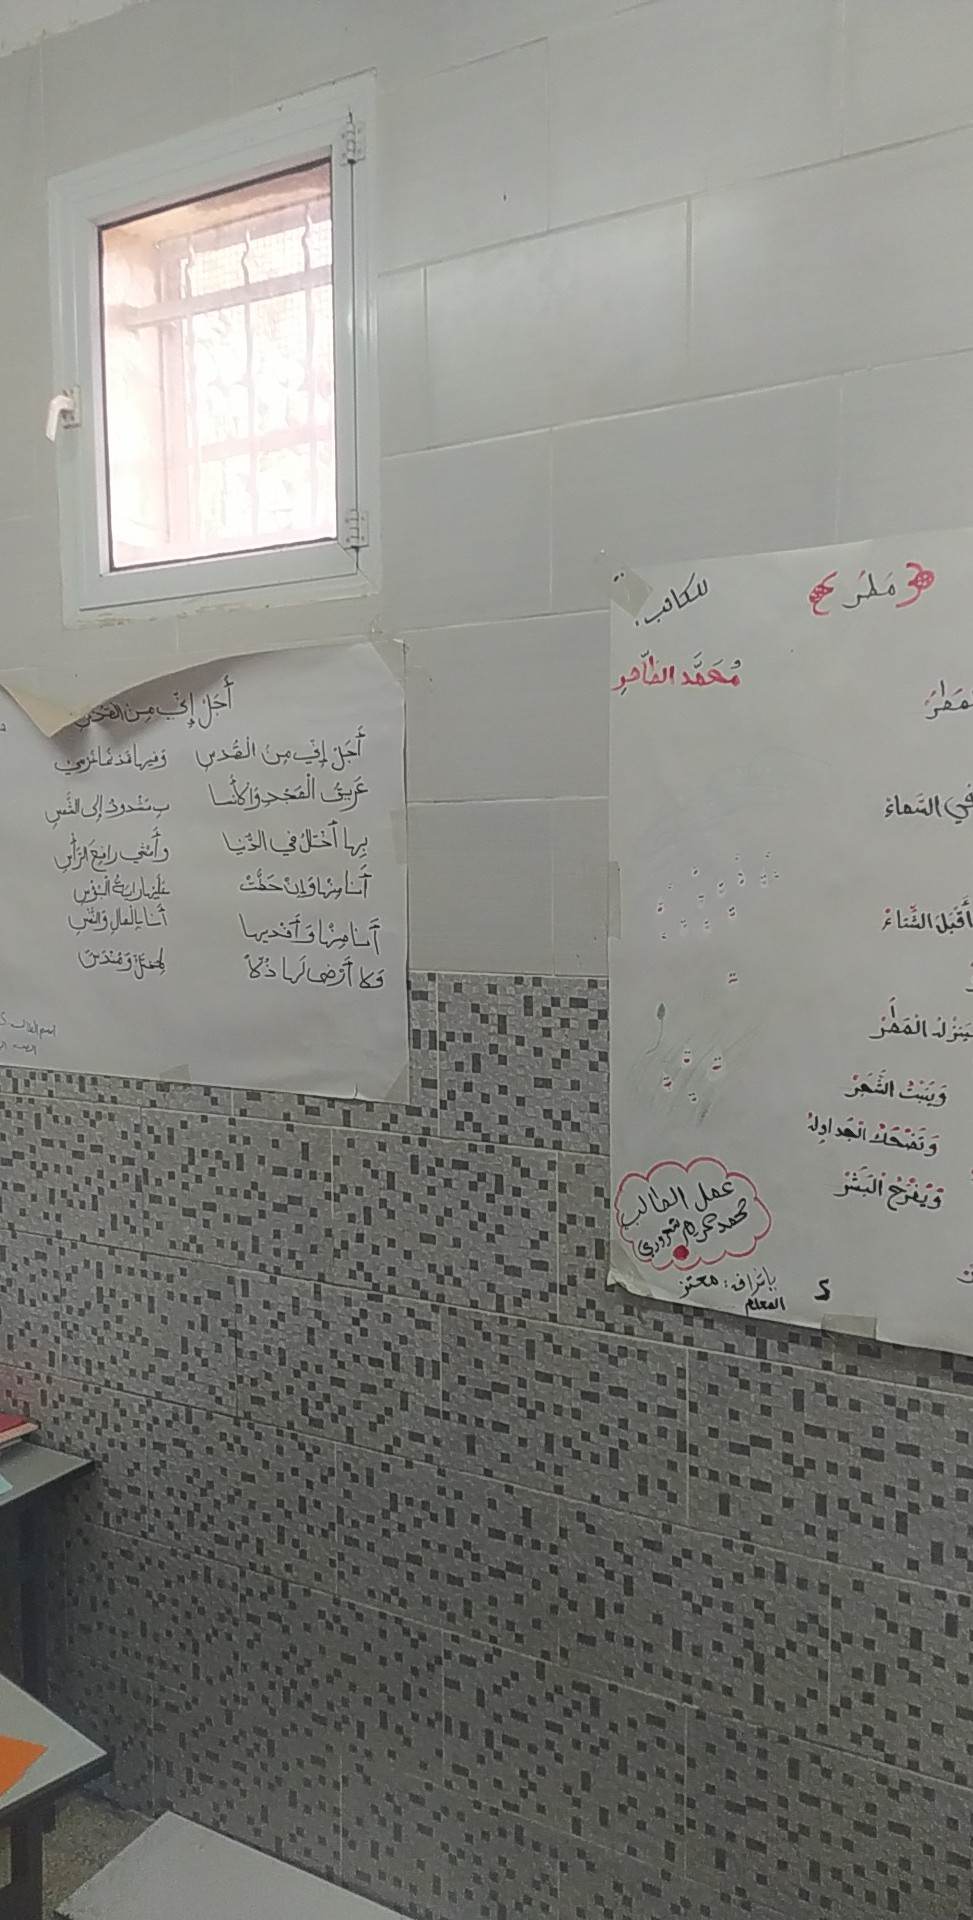 أَجَلْ إِنِّي مِنَ القُدْسِ
أَجَلْ إِنِّي مِنَ الْقُدْسِ وَفِيهَا قَدْ نَمَا غَرْسِي
عَرِيقُ الْمَجْدِ وَالأَنْسَا بِ مَشْدُودٌ إلى الشَّمْسِ
بِهَا أَخْتَالُ فِي الدُّنْيَا وَأَمْشِي رَافِعَ الرَّأْسِ
أَنَا مِنْهَا وَإِنْ حَطَّتْ عَلَيْهَا رَايَةُ الْبُؤْسِ
أَنَا مِنْهَا وَأَفْدِيهَا أَنَا بِالْمَالِ وَالنَّفْسِ
وَلَا أَرْضَى لَهَا ذُلًّا
اسم الطالب
مَطَرٌ
للكاتب:
مُحَمَّد الظَّاهِر
مَطَرُ
في السَّمَاءْ
أَقْبَلَ الشِّتَاءْ
سَيَنْزِلُ الْمَطَرْ
وَيَنْبُتُ الشَّجَرْ
وَتَضْحَكُ الْجَدَاوِلُ
وَيَفْرَحُ الْبَشَرْ
عمل الطالب
محمد كريم شروري
بإشراف: معتز
المعلم